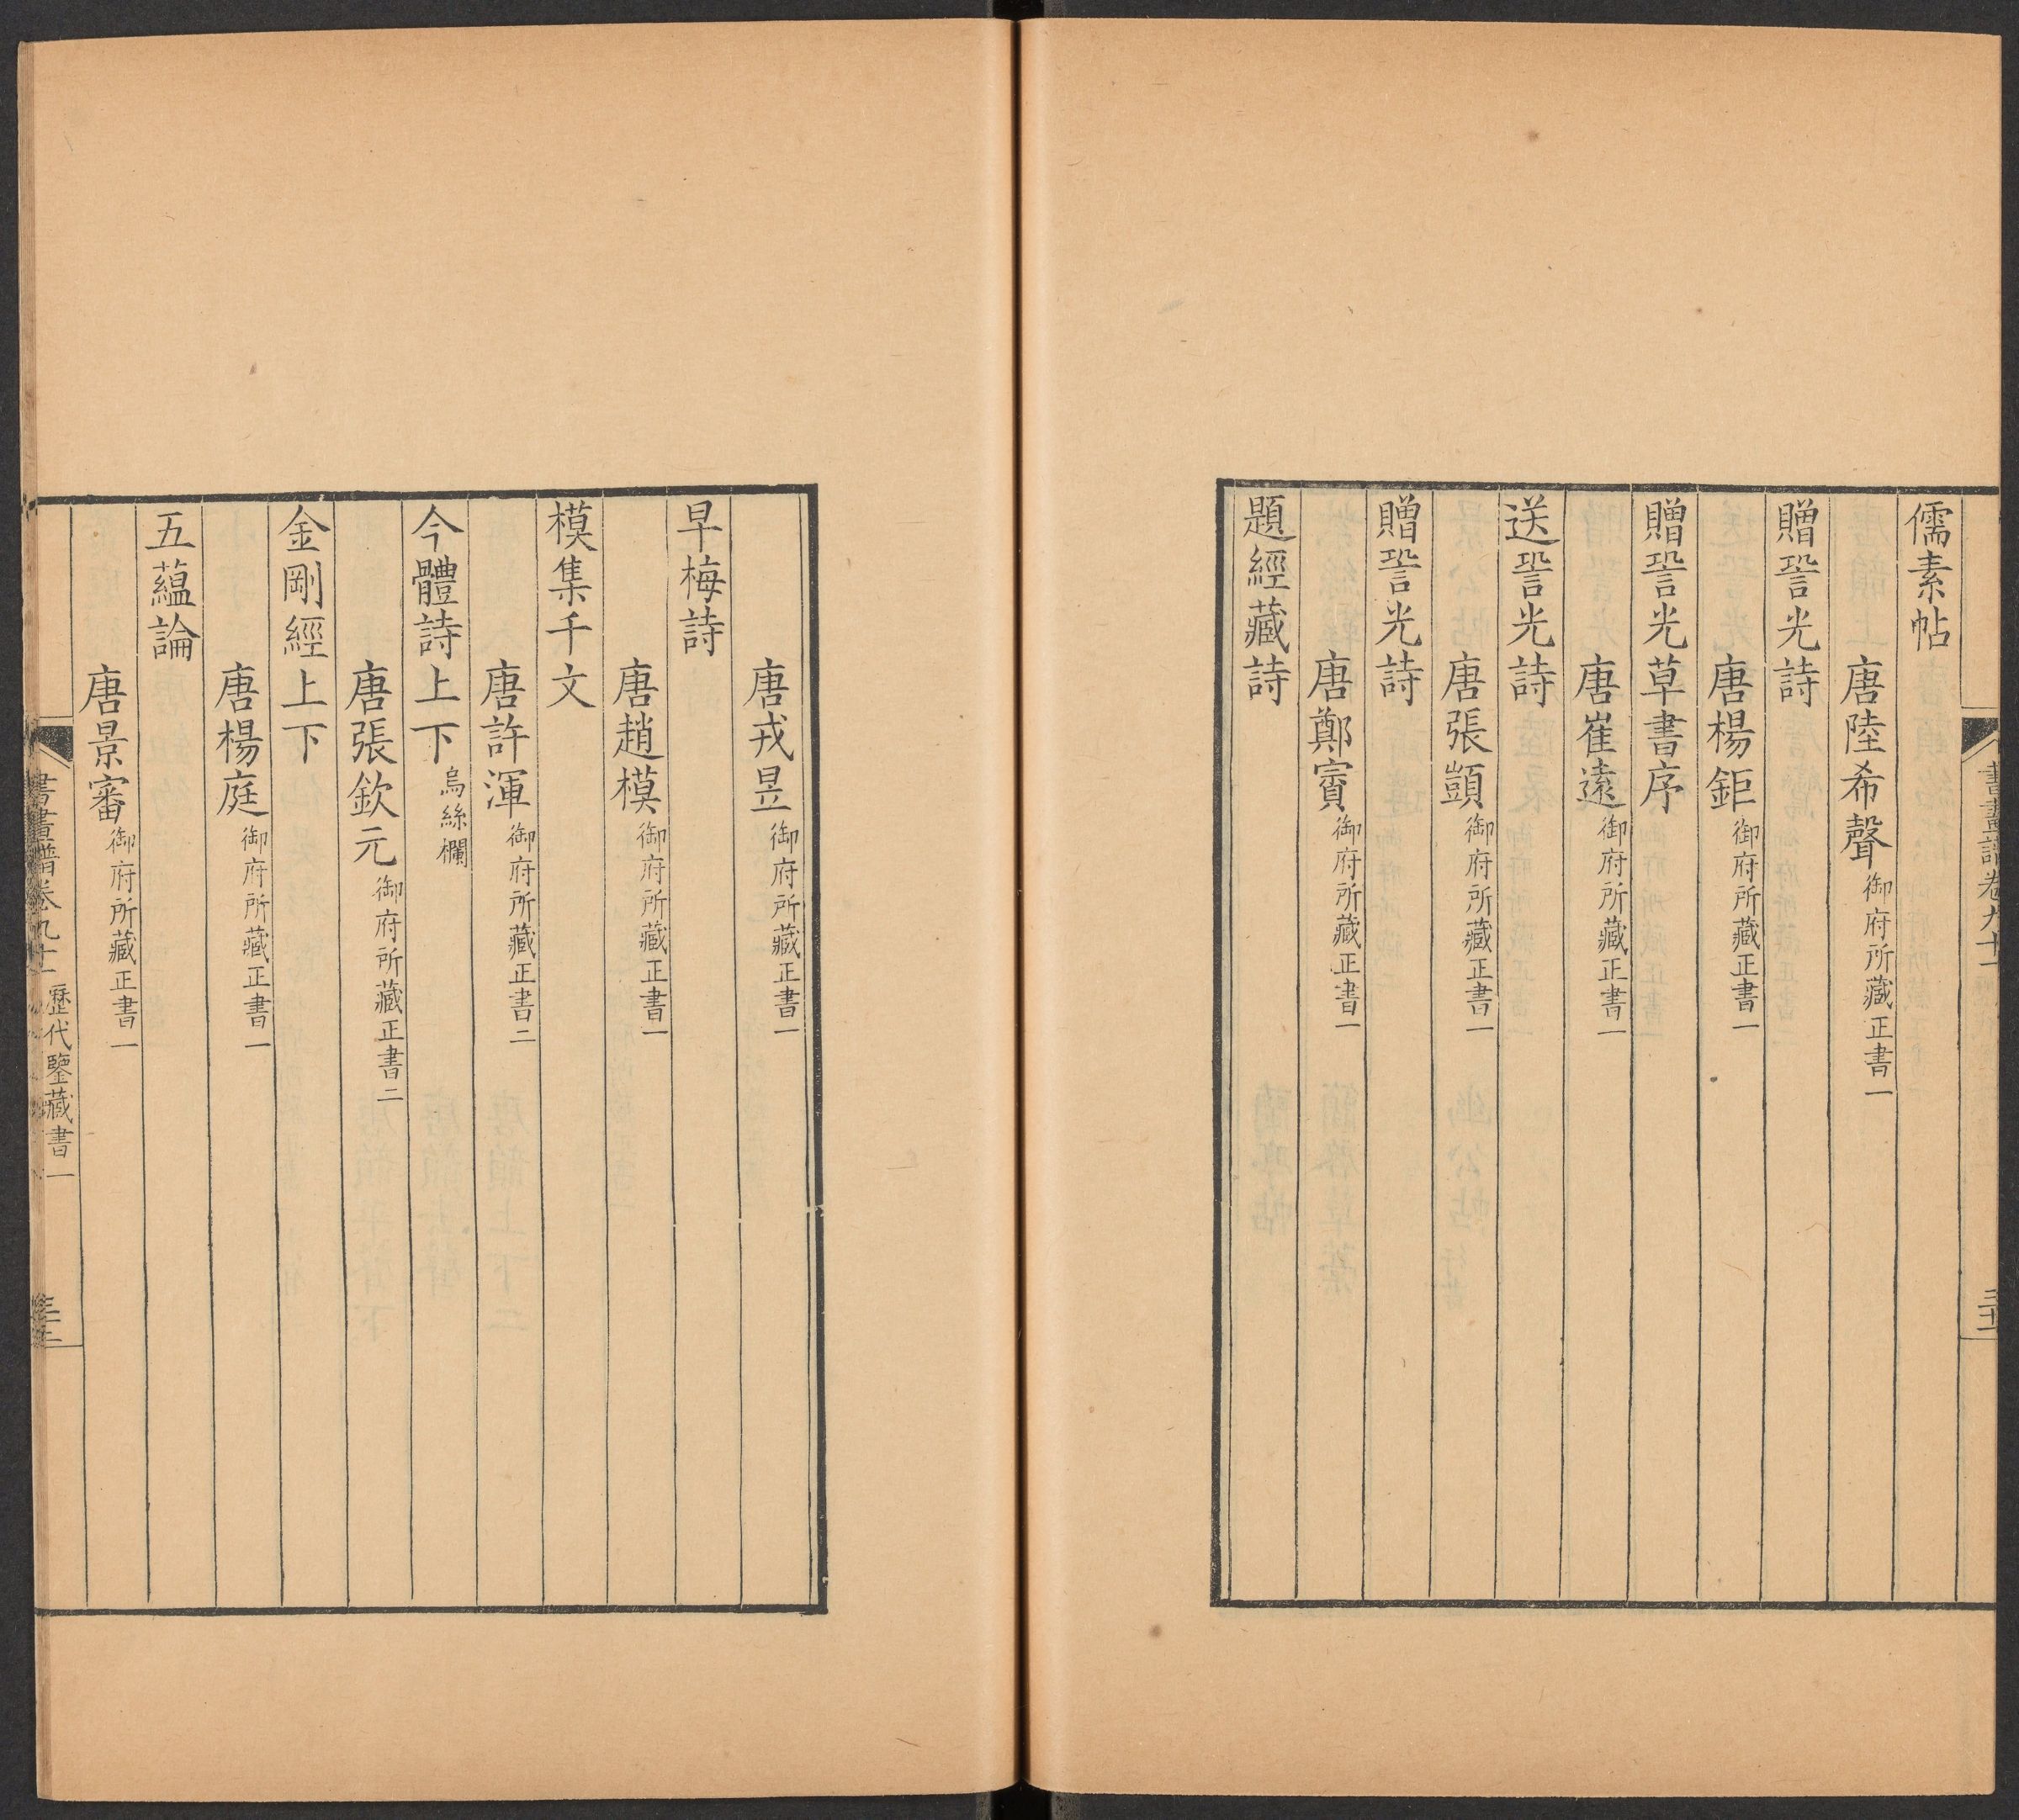 儒素帖
唐陸希聲御府所藏正書一
贈䛒光詩
唐楊鉅御府所藏正書一
贈䛒光草書序
唐崔遠御府所藏正書一
送䛒光詩
唐張顗御府所藏正書一
贈䛒光詩
唐鄭賓御府所藏正書一
題經藏詩
唐戎昱御府所藏正書一
早梅詩
唐趙模御府所藏正書一
模集千文
唐許渾御府所藏正書二
今體詩上下烏絲欄
唐張欽元御府所藏正書二
金剛經上下
唐楊庭御府所藏正書一
五蘊論
唐景審御府所藏正書一
書畫譜卷九十一 歷代鑒藏書一